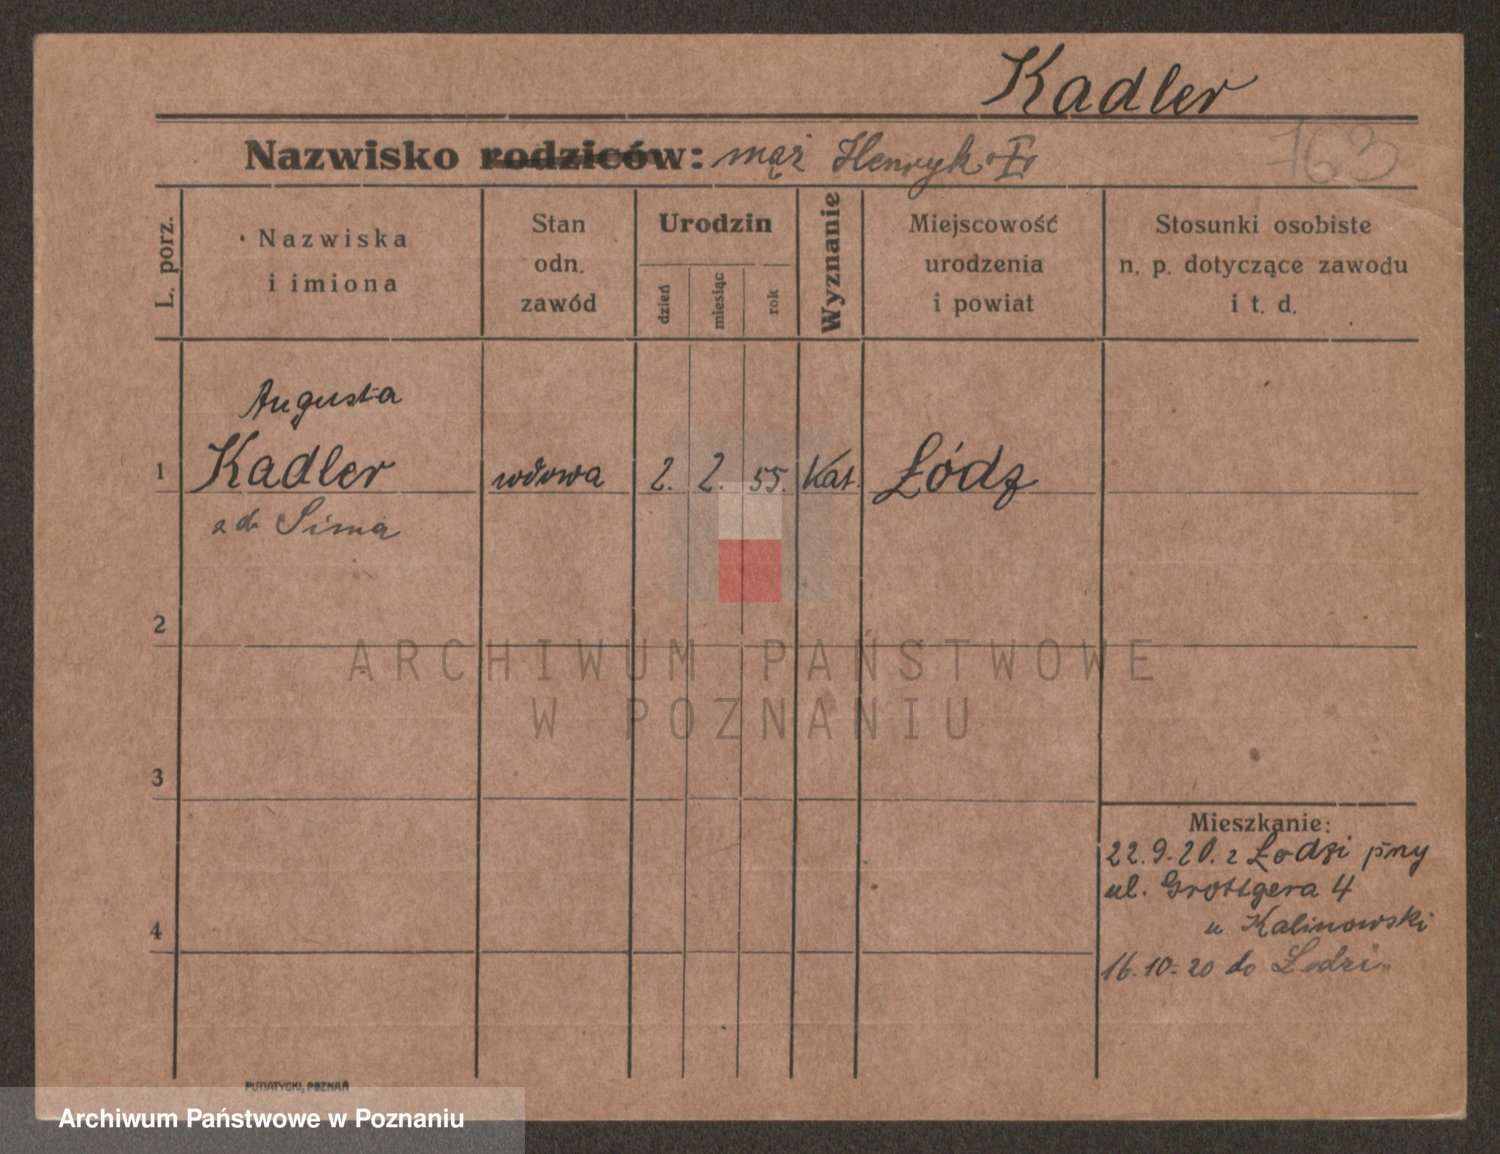 Kadler
Nazwisko rodziców: mąż Henryk
763
L. porz.
Nazwiska
i imiona
Stan
odn.
zawód
Urodzin
dzień
miesiąc
rok
Wyznanie
Miejscowość
urodzenia
i powiat
Stosunki osobiste
n. p. dotyczące zawodu
i t. d.
Augusta
1 Kadler wdowa 2. 2. 55. Kat. Łódz
z d. Sima
2
ARCHIWUM PAŃSTWOWE
W POZNANIU
3
Mieszkanie:
22.9.20. z Łodzi
ul. Grottgera 4
u Kalinowski
4
16.10.20 do Łodzi
PUTIATYCKI, POZNAŃ
Archiwum Państwowe w Poznaniu